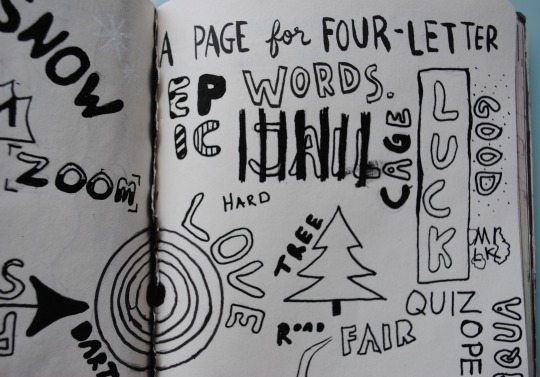 SNOW
ZOOM
DART
A PAGE for FOUR-LETTER
WORDS.
EPIC
JAIL
CAGE
LUCK
GOOD
HARD
LOVE
TREE
ROAD
FAIR
QUIZ